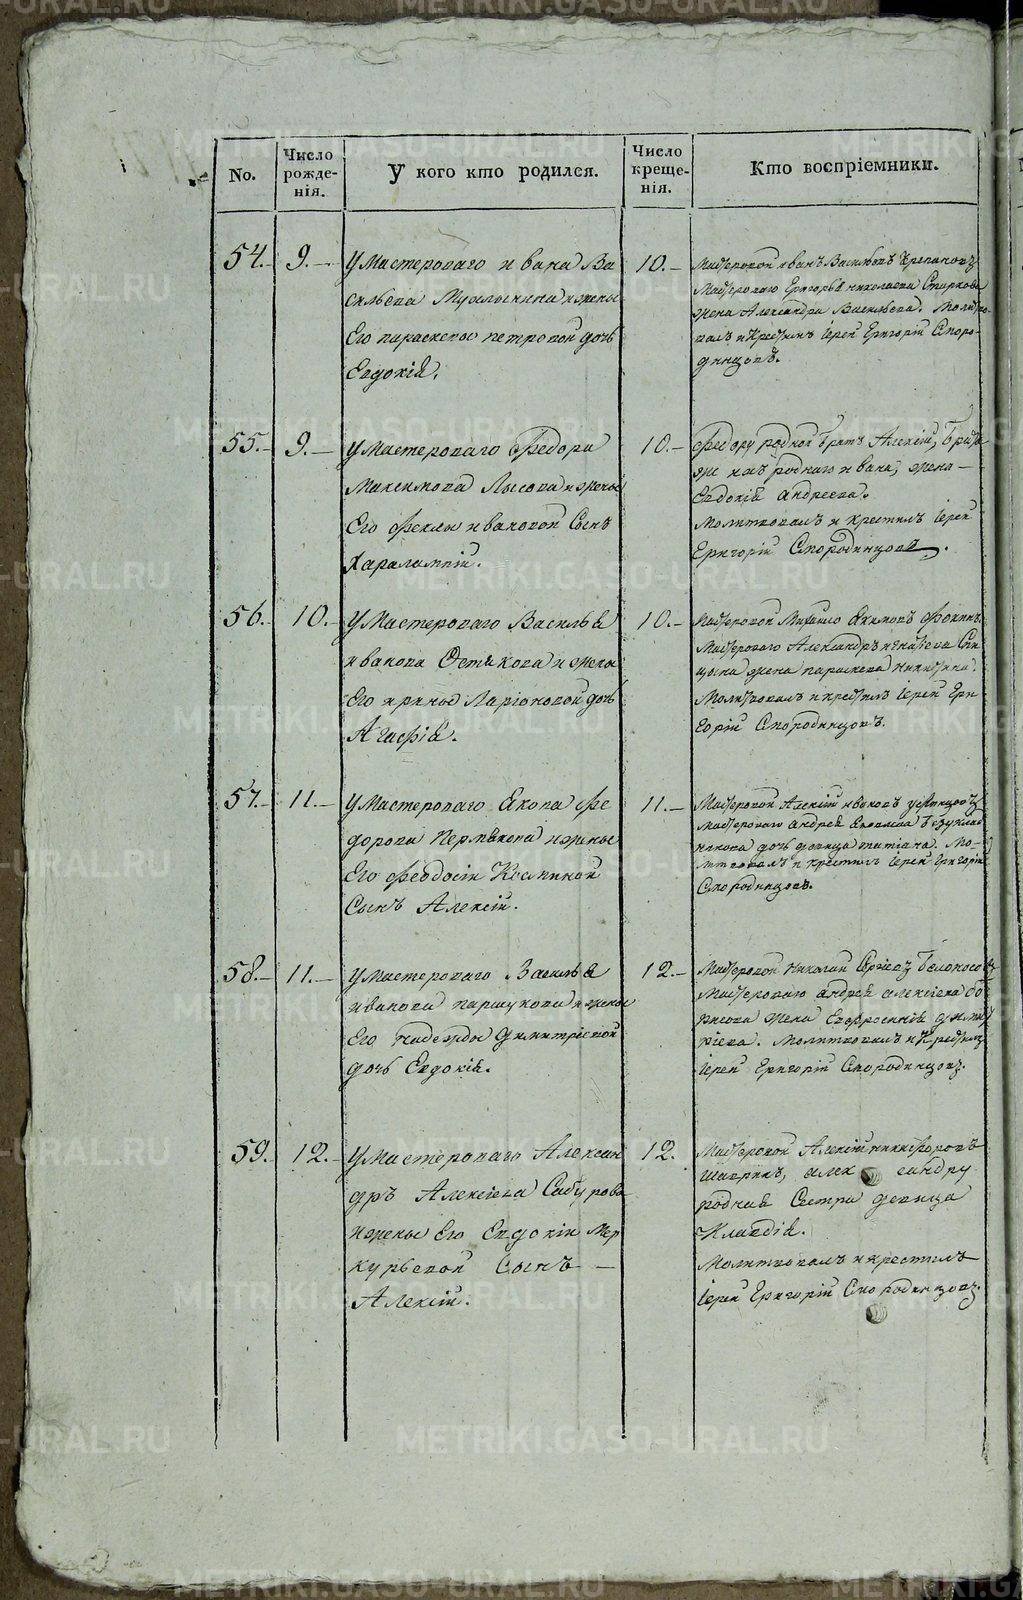 No.
Число рожде-
нія.
У кого кто родился.
Число креще-
нія.
Кто воспріемники.
54.- 9.- У Мастероваго Ивана Ва 10.-
сильева и жены
Его параскевы петровой дочь
Евдокія.
Мастеровой Иванъ Васильевъ
Мастероваго Григорья николаева
жена Александра Васильева. Молитво-
валъ и Крестилъ Іерей Григорій Сморо-
динцовъ.
55.- 9.- У Мастероваго Федора 10.-
Максимова Лысова и жены
Его феклы ивановой Сынъ
Харалампій.
Федору родной братъ Алексій,
родного ивана, жена -
Евдокія андреева.
Молитвовалъ и крестилъ Іерей
Григорій Смородинцовъ.
56.- 10.- У Мастероваго Василья 10.-
иванова и жены
Его ирины Ларіоновой дочь
Агафія.
Мастеровой Михайло Якимовъ
Мастероваго Александръ игнатьева
жена параскева никитина.
Молитвовалъ и крестилъ Іерей Гри-
горій Смородинцовъ.
57.- 11.- У Мастероваго Якова фе 11.-
дорова Пермякова и жены
Его феодосіи Косминой
Сынъ Алексій.
Мастеровой Алексій ивановъ
Мастероваго андрея
дочь девица татіана. Мо-
литвовалъ и крестилъ Іерей Григорій
Смородинцовъ.
58.- 11.- У Мастероваго Василья 12.-
иванова паршукова и жены
Его надежды димитріевой
дочь Евдокія.
Мастеровой Николай
Мастероваго андрея алексіева бо
рисова жена Евфросинія димит
ріева. Молитвовалъ и Крестилъ
Іерей Григорій Смородинцовъ.
59. 12.- У Мастероваго Алексан 12.
дръ Алексіева Сабурова
и жены Его Евдокіи Мер
курьевой Сынъ -
Алексій.
Мастеровой Алексій никифоровъ
алек сандру
родная Сестра девица
Клавдія.
Молитвовалъ и крестилъ
Іерей Григорій Смородинцовъ.
METRIKI.GASO-URAL.RU